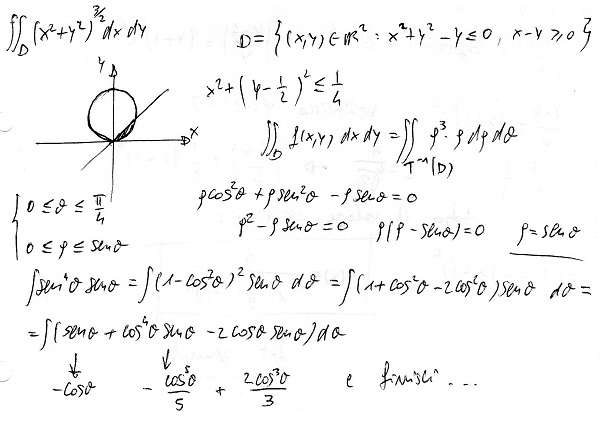 ∬_D (x²+y²)^{3/2} dx dy   D = {(x,y) ∈ ℝ² : x²+y²-y ≤ 0, x-y ≥ 0}
y
x² + (y - 1/2)² ≤ 1/4
x
∬_D f(x,y) dx dy = ∬_{T⁻¹(D)} ρ³·ρ dρ dθ
{ 0 ≤ θ ≤ π/4   ρcos²θ + ρsen²θ - ρsenθ = 0
0 ≤ ρ ≤ senθ   ρ² - ρsenθ = 0   ρ(ρ - senθ) = 0   ρ = senθ
∫sen⁴θ senθ = ∫(1-cos²θ)² senθ dθ = ∫(1+cos²θ-2cos²θ) senθ dθ =
= ∫(senθ + cos⁴θ senθ - 2cosθ senθ) dθ
↓ ↓
-cosθ   - cos⁵θ/5 + 2cos³θ/3   e finisci ...